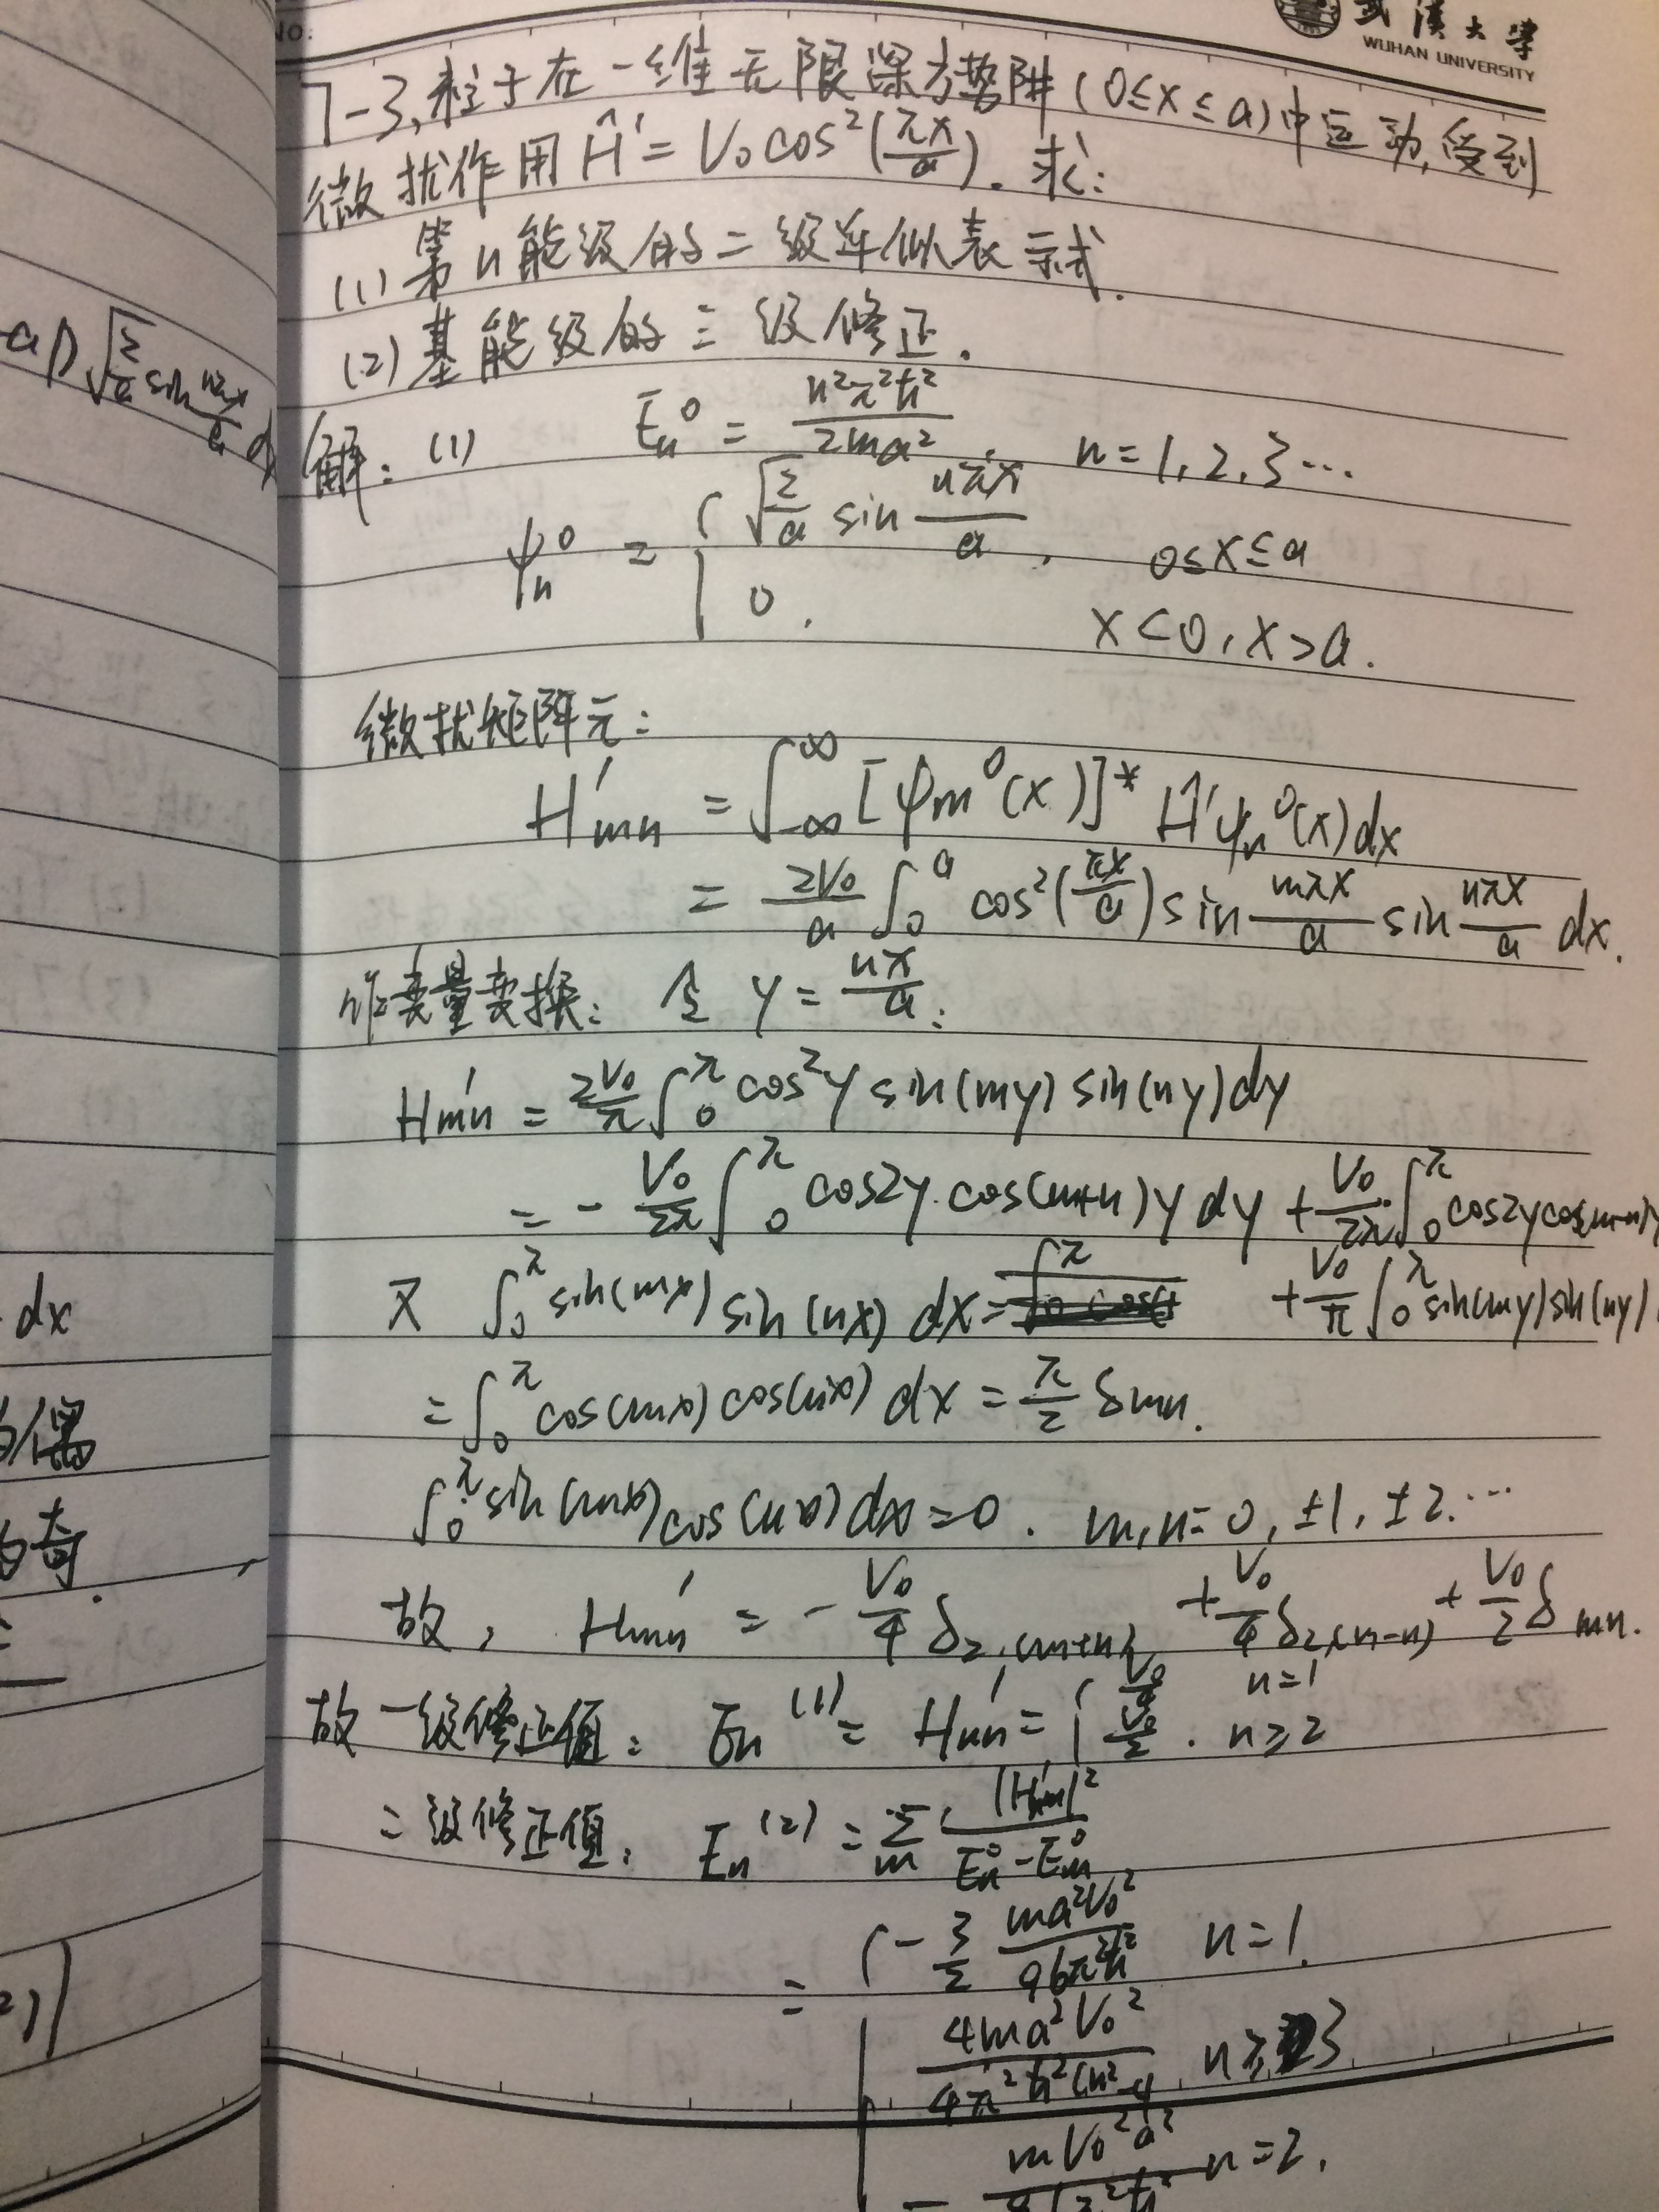 No:
武漢大学
WUHAN UNIVERSITY
7-3,粒子在一维无限深方势阱(0≤x≤a)中运动,受到
微扰作用Ĥ'=V₀cos²(πx/a). 求:
(1)第n能级的二级近似表示式.
(2)基能级的三级修正.
解:(1) Eₙ⁰ = n²π²ħ²/2ma², n=1,2,3…
ψₙ⁰ = { √(2/a) sin nπx/a, 0≤x≤a
0. x<0,x>a.
微扰矩阵元:
H'mn = ∫_{-∞}^{∞} [ψm⁰(x)]* Ĥ'ψn⁰(x)dx
= 2V₀/a ∫₀^a cos²(πx/a) sin mπx/a sin nπx/a dx.
作变量变换: 令 y = πx/a:
H'mn = 2V₀/π ∫₀^π cos²y sin(my) sin(ny)dy
= - V₀/2π ∫₀^π cos2y·cos(m+n)y dy + V₀/2π·∫₀^π cos2ycos(m-n)y
+ V₀/π ∫₀^π sin(my)sin(ny)
又 ∫₀^π sin(mx) sin(nx) dx=
= ∫₀^π cos(mx) cos(nx) dx = π/2 δmn.
∫₀^π sin(mx)cos(nx)dx=0. m,n=0,±1,±2…
故, H'mn = - V₀/4 δ₂,(m+n) + V₀/4 δ₂,(m-n) + V₀/2 δmn.
故一级修正值: En⁽¹⁾ = H'nn = { V₀/4 n=1
V₀/2. n≥2
二级修正值: En⁽²⁾ = Σ'm |H'mn|²/(En⁰-Em⁰)
= { - 3/2 ma²V₀²/96π²ħ² n=1.
4ma²V₀²/4π²ħ²(n²-4 n≥3
- mV₀²a² n=2.
dx
偶
奇.